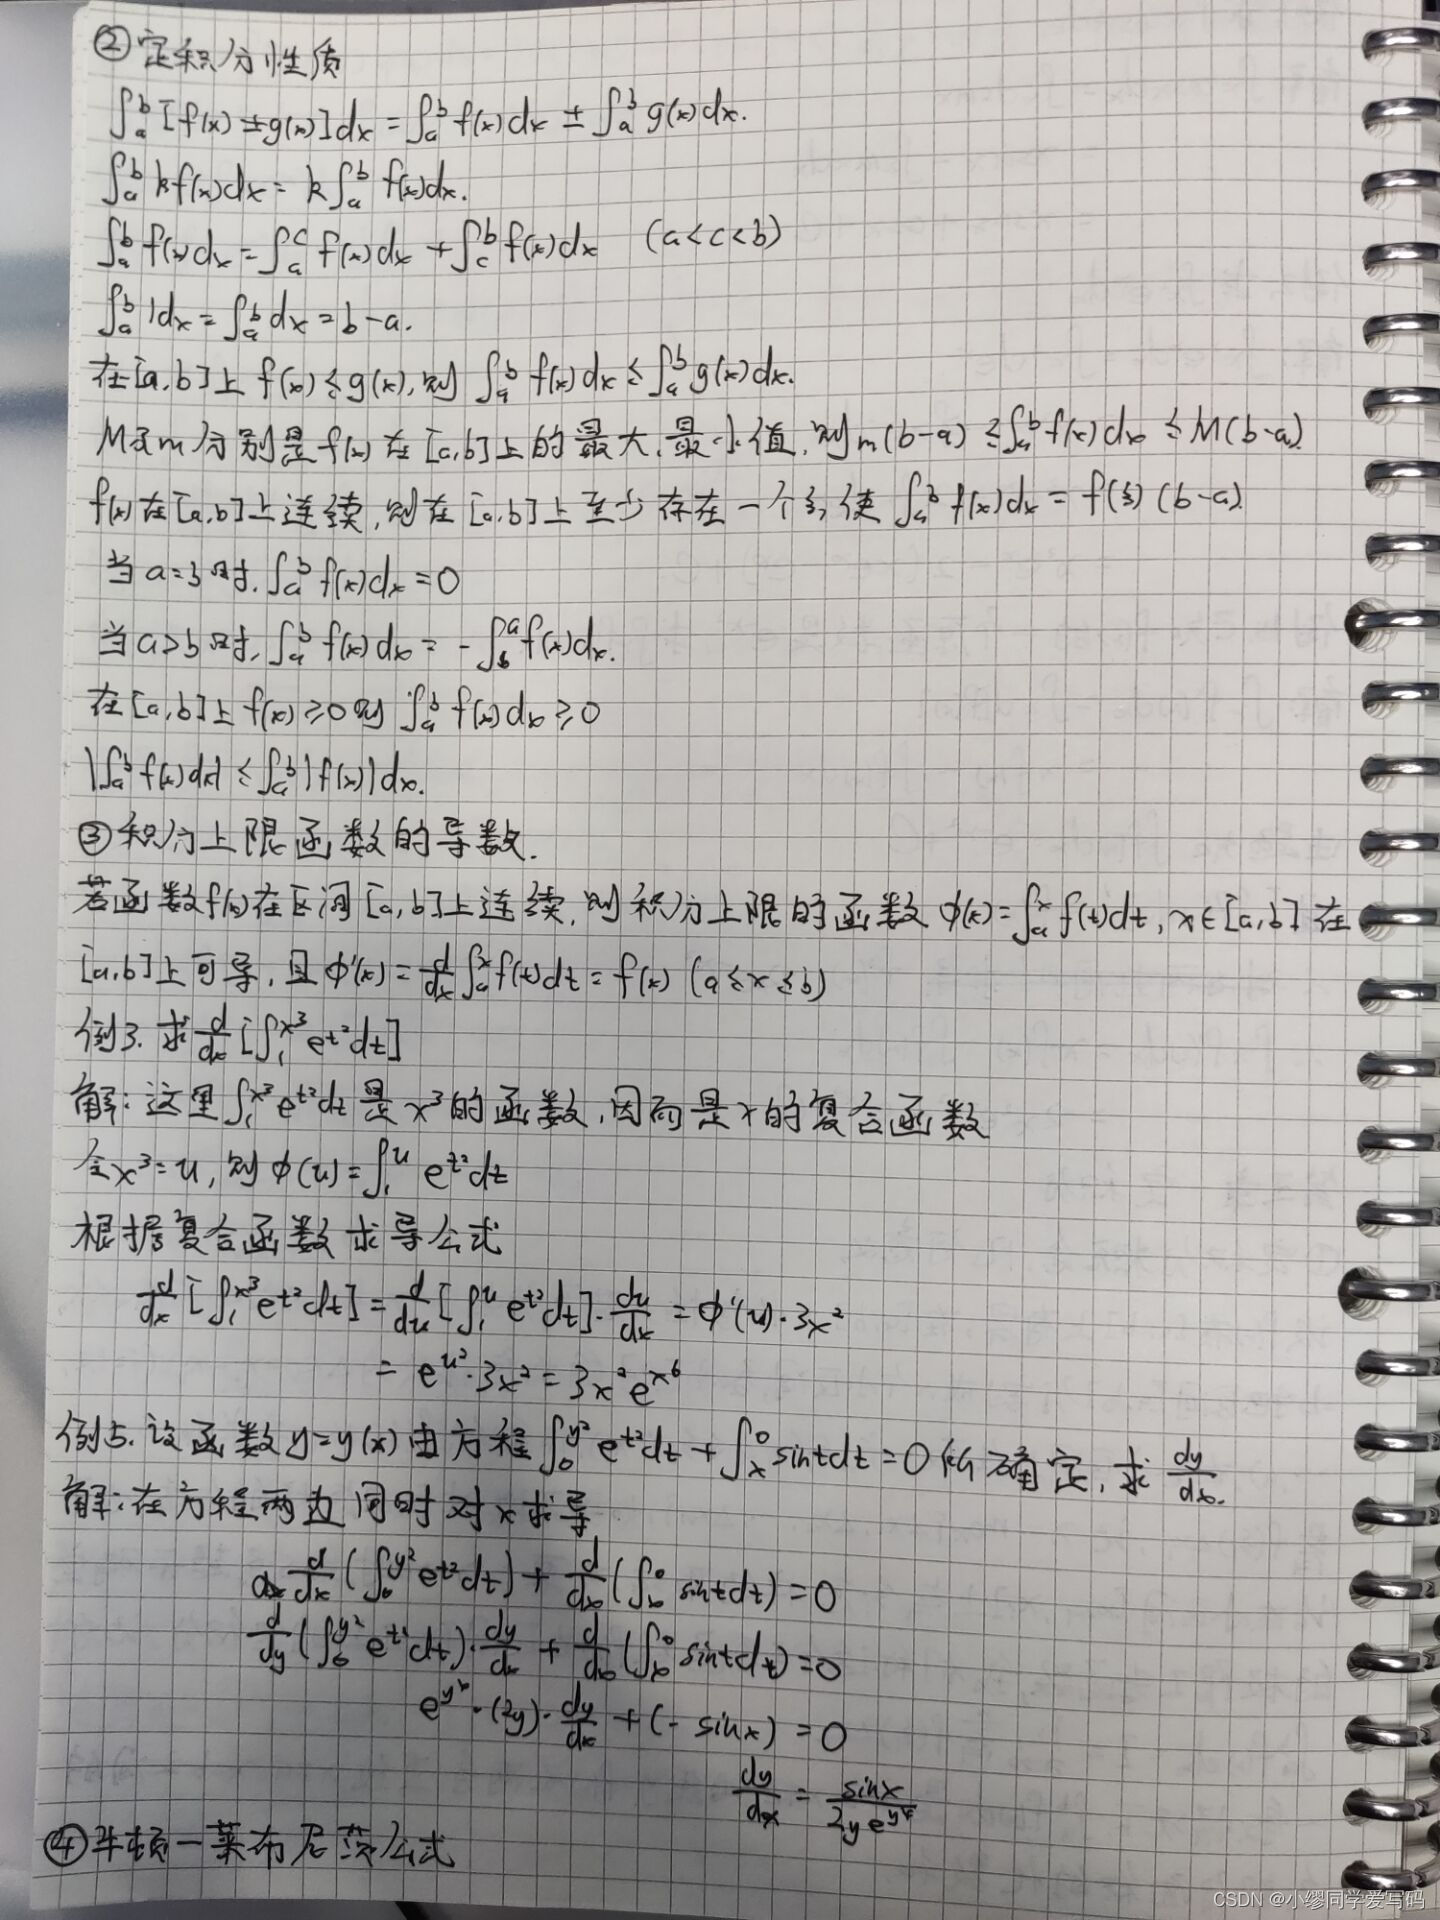 ②定积分性质
∫ₐᵇ[f(x)±g(x)]dx=∫ₐᵇf(x)dx±∫ₐᵇg(x)dx.
∫ₐᵇkf(x)dx=k∫ₐᵇf(x)dx.
∫ₐᵇf(x)dx=∫ₐᶜf(x)dx+∫_c^b f(x)dx (a<c<b)
∫ₐᵇ1dx=∫ₐᵇdx=b-a.
在[a,b]上f(x)≤g(x),则∫ₐᵇf(x)dx≤∫ₐᵇg(x)dx.
M及m分别是f(x)在[a,b]上的最大,最小值,则m(b-a)≤∫ₐᵇf(x)dx≤M(b-a)
f(x)在[a,b]上连续,则在[a,b]上至少存在一个ξ,使∫ₐᵇf(x)dx=f(ξ)(b-a)
当a=b时,∫ₐᵇf(x)dx=0
当a>b时,∫ₐᵇf(x)dx=-∫_b^a f(x)dx.
在[a,b]上f(x)≥0则∫ₐᵇf(x)dx≥0
|∫ₐᵇf(x)dx|≤∫ₐᵇ|f(x)|dx.
③积分上限函数的导数.
若函数f(x)在区间[a,b]上连续,则积分上限的函数φ(x)=∫ₐˣf(t)dt,x∈[a,b]在
[a,b]上可导,且φ'(x)=d/dx∫ₐˣf(t)dt=f(x) (a≤x≤b)
例3.求d/dx[∫_1^{x³}e^{t²}dt]
解:这里∫_1^{x³}e^{t²}dt是x³的函数,因而是x的复合函数
令x³=u,则φ(u)=∫_1^u e^{t²}dt
根据复合函数求导公式
d/dx[∫_1^{x³}e^{t²}dt]=d/du[∫_1^u e^{t²}dt]·du/dx=φ'(u)·3x²
=e^{u²}·3x²=3x²e^{x⁶}
例5.设函数y=y(x)由方程∫_0^{y²}e^{t²}dt+∫_x^0 sintdt=0所确定,求dy/dx.
解:在方程两边同时对x求导
d/dx(∫_0^{y²}e^{t²}dt)+d/dx(∫_x^0 sintdt)=0
d/dy(∫_0^{y²}e^{t²}dt)·dy/dx+d/dx(∫_x^0 sintdt)=0
e^{y⁴}·(2y)·dy/dx+(-sinx)=0
dy/dx=sinx/2ye^{y⁴}
④牛顿-莱布尼茨公式
CSDN @小缪同学爱写码